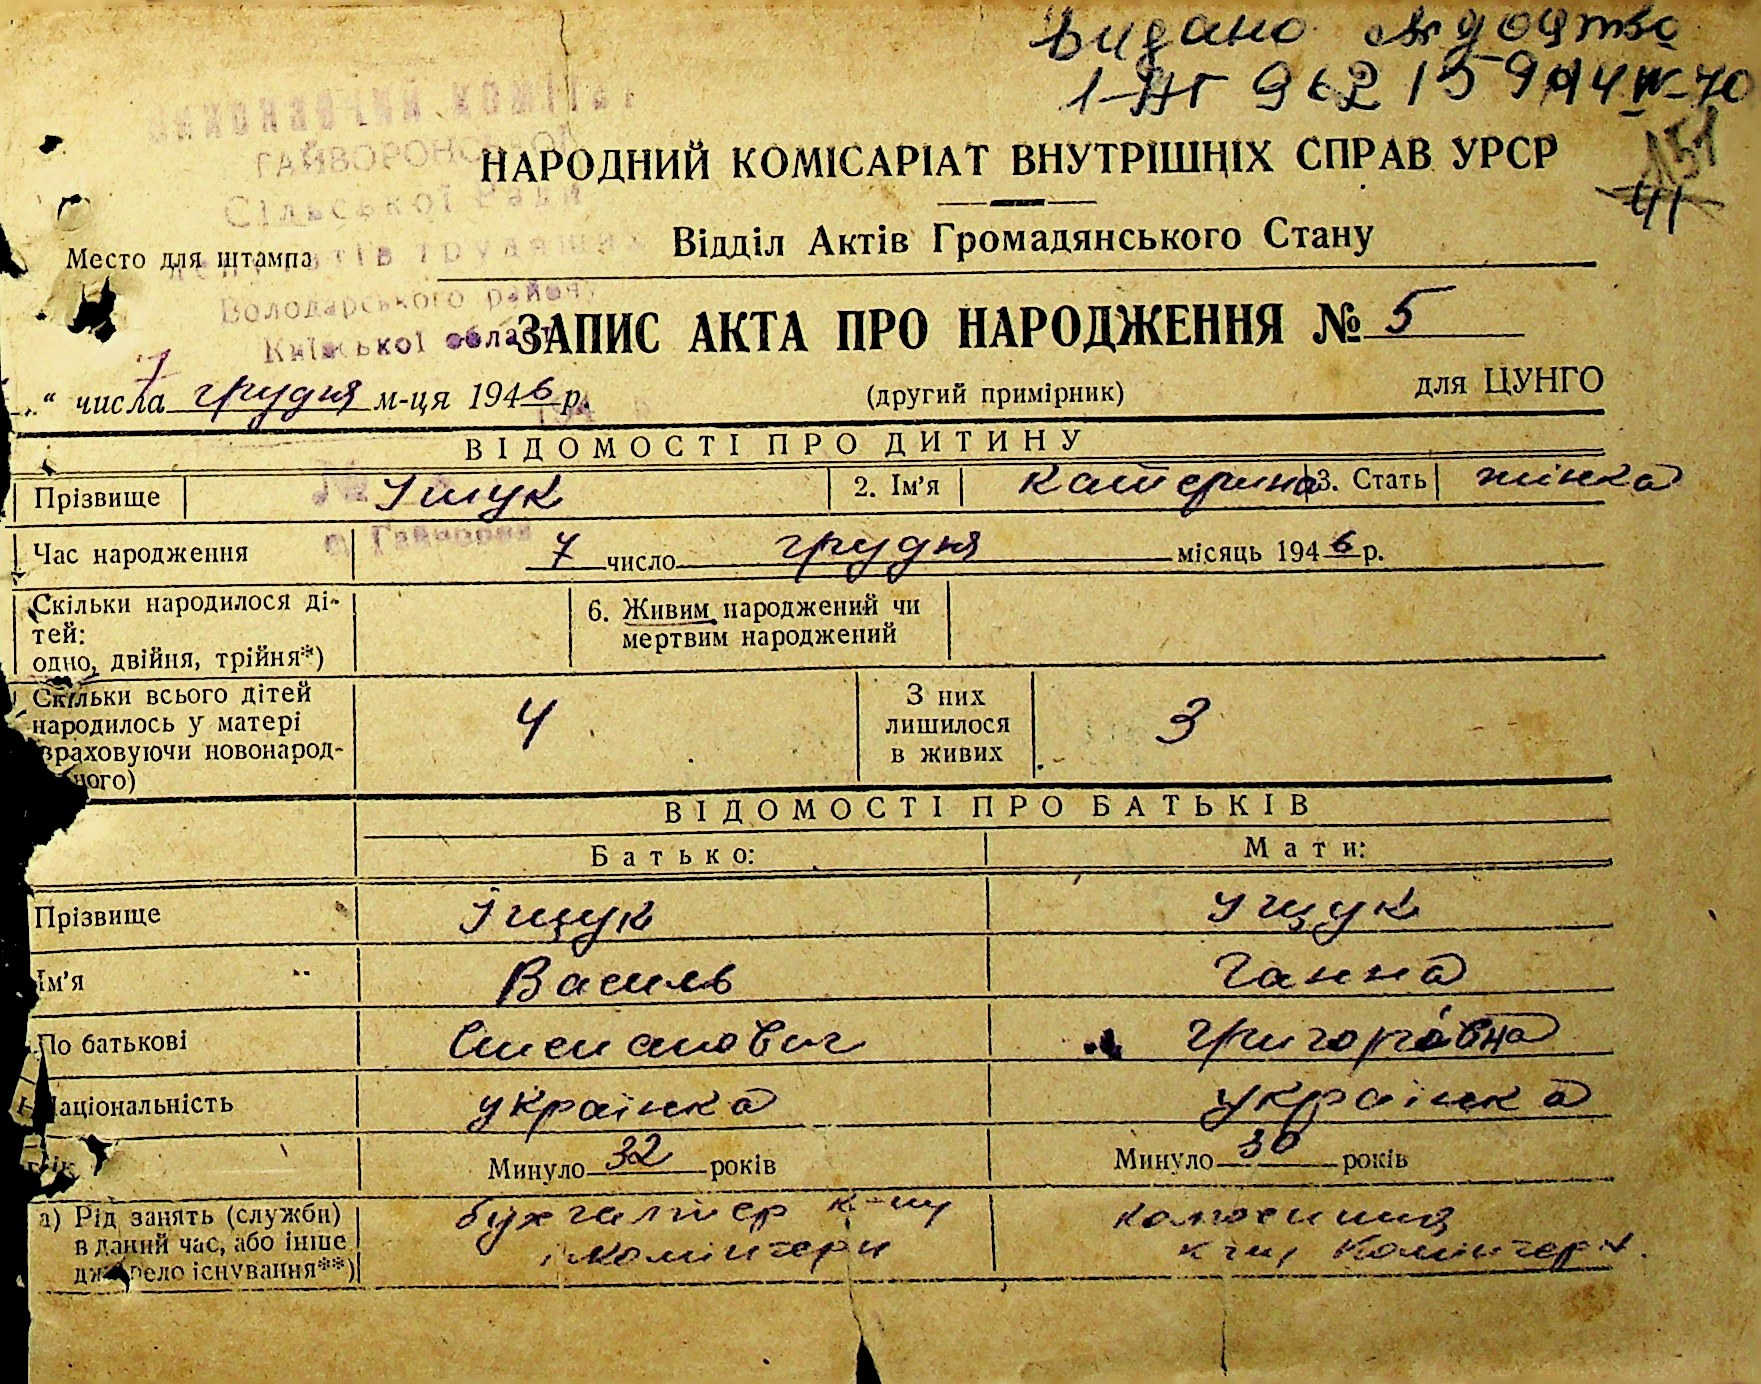 Видано свідоцтво
1-АГ 962159 14 IV-70
151
41
виконавчий комітет
ГАЙВОРОНСЬКОЇ
Сільської Ради
депутатів трудящих
Володарського району
Київської області
НАРОДНИЙ КОМІСАРІАТ ВНУТРІШНІХ СПРАВ УРСР
Відділ Актів Громадянського Стану
Место для штампа
ЗАПИС АКТА ПРО НАРОДЖЕННЯ № 5
„ 7 “ числа грудня м-ця 1946 р.
(другий примірник)
для ЦУНГО
ВІДОМОСТІ ПРО ДИТИНУ
Прізвище Іщук 2. Ім'я Катерина 3. Стать жінка
с. Гайворон
Час народження 7 число грудня місяць 1946 р.
Скільки народилося ді-
тей:
одно, двійня, трійня*)
6. Живим народжений чи
мертвим народжений
Скільки всього дітей
народилось у матері
враховуючи новонарод-
ного)
4
З них
лишилося
в живих
3
ВІДОМОСТІ ПРО БАТЬКІВ
Батько: Мати:
Прізвище Іщук Іщук
Ім'я Василь Ганна
По батькові Степанович Григорівна
Національність українка українка
Минуло 32 років Минуло 30 років
а) Рід занять (служби)
в даний час, або інше
джерело існування**)
бухгалтер к-пу
Комінтерн
колгоспниця
к-пу Комінтерн.